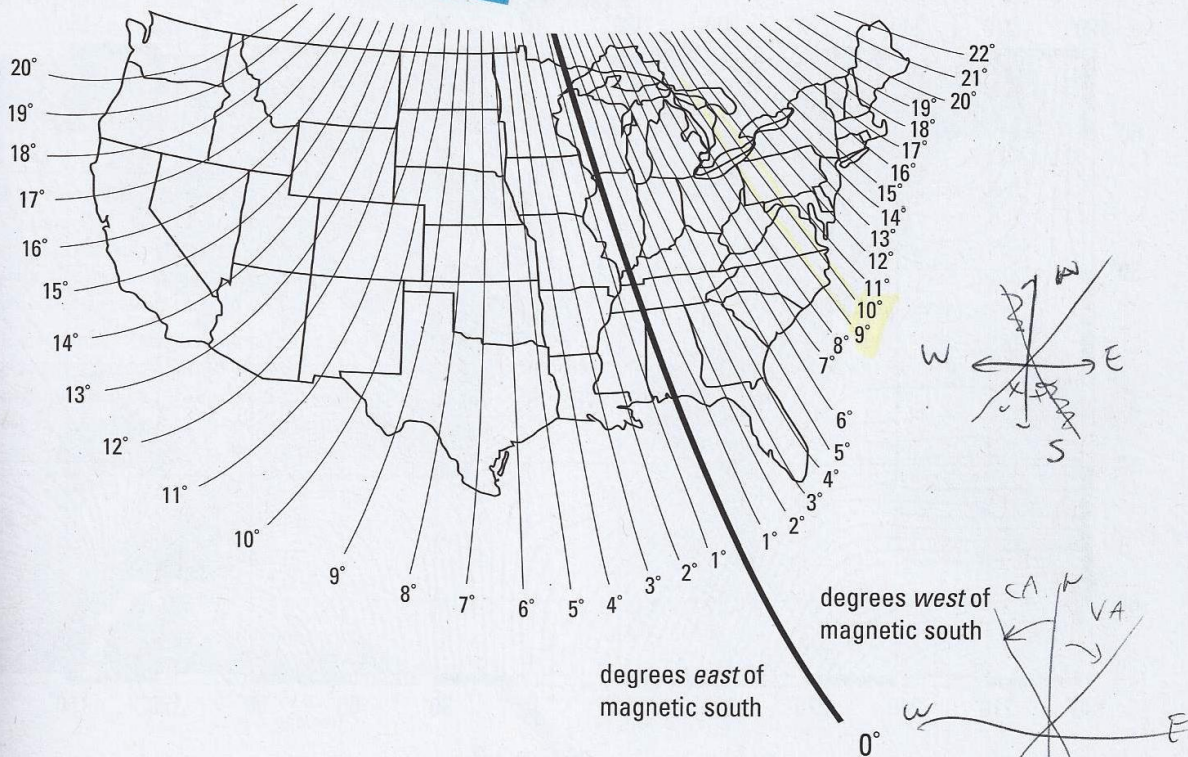 20°
19°
18°
17°
16°
15°
14°
13°
12°
11°
10°
9°
8°
7°
6°
5°
4°
3°
2°
1°
0°
1°
2°
3°
4°
5°
6°
7°
8°
9°
10°
11°
12°
13°
14°
15°
16°
17°
18°
19°
20°
21°
22°
degrees east of
magnetic south
degrees west of
magnetic south
N
W E
S
CA N VA
W E